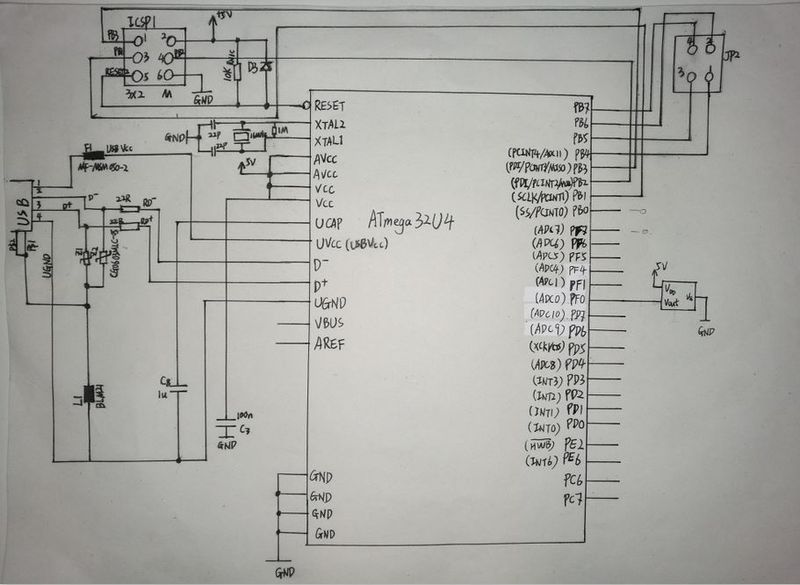 ICSP1
+5V
PB3
1
2
3
4
PB2
RESET2
5
6
3x2
M
GND
10K
D3
4
2
3
1
JP2
GND
22P
22P
16MHz
1M
5V
F1
USB Vcc
MF-MSM050-2
USB
1
2
3
4
D-
D+
22R
RD-
22R
RD+
Z1
Z2
UGND
L1
C8
1u
100n
C7
GND
RESET
XTAL2
XTAL1
AVcc
AVcc
Vcc
Vcc
UCAP
UVcc (USBVcc)
D-
D+
UGND
VBUS
AREF
GND
GND
GND
GND
GND
ATmega32U4
PB7
PB6
PB5
(PCINT4/ADC11) PB4
(PDI/PCINT3/MISO) PB3
PB2
(SCLK/PCINT1) PB1
(SS/PCINT0) PB0
(ADC7) PF7
(ADC6) PF6
(ADC5) PF5
(ADC4) PF4
(ADC1) PF1
(ADC0) PF0
(ADC10) PD7
(ADC9) PD6
PD5
(ADC8) PD4
(INT3) PD3
(INT2) PD2
(INT1) PD1
(INT0) PD0
(HWB) PE2
(INT6) PE6
PC6
PC7
5V
VDD
Vout
Vs
GND